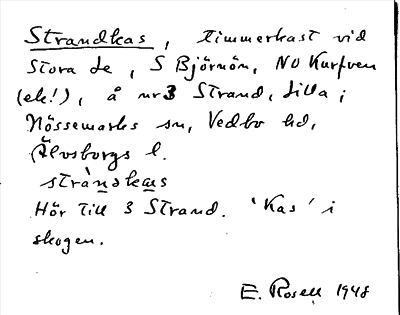 Strandkas, timmerkast vid
Stora Le, S Björnön, NO Kurfven
(ek!), å nr 3 Strand, Lilla;
Nössemarks sn, Vedbo hd,
Älvsborgs l.
stràndkas
Hör till 3 Strand. 'Kas' i
skogen.
E. Rosell 1948